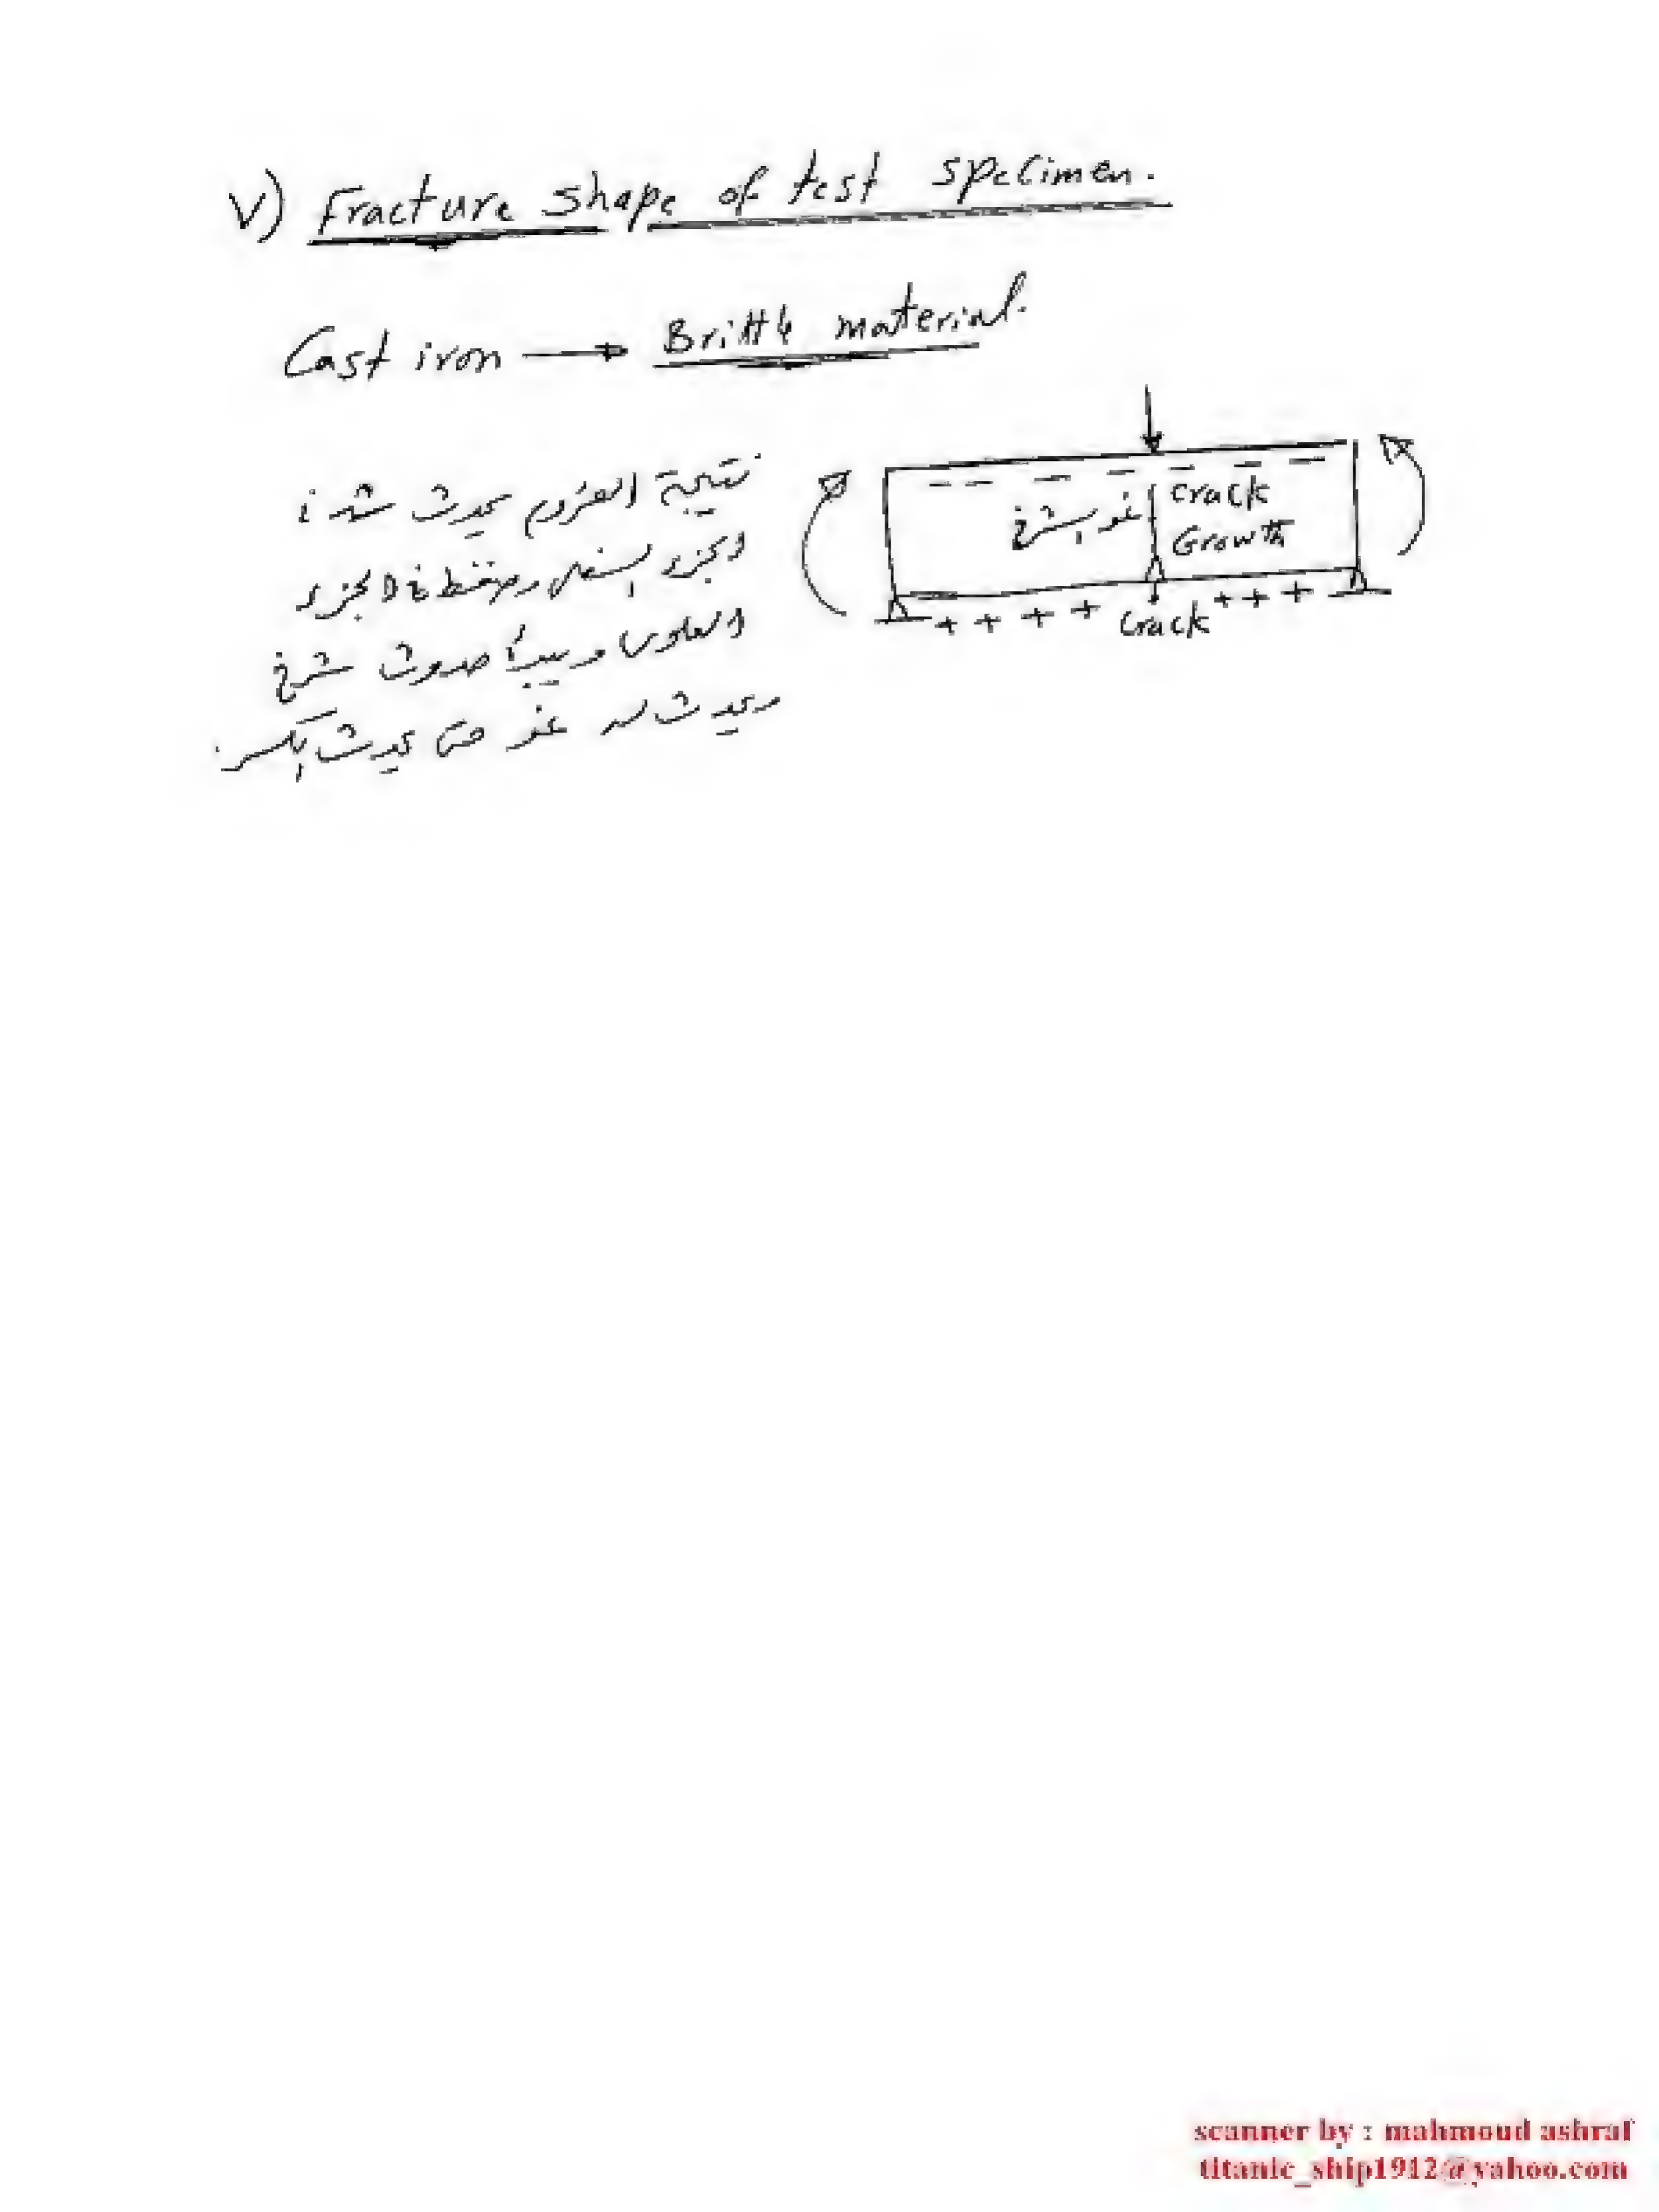 V) Fracture shape of test specimen.
Cast iron → Brittle material.
نتيجة العزوم يحدث شد في
الجزء السفلي وضغط في الجزء
العلوي ويبدأ حدوث شرخ
ويحدث له نمو حتى يحدث الكسر.
نمو الشرخ
crack
Growth
crack
scanner by : mahmoud ashraf
titanic_ship1912@yahoo.com